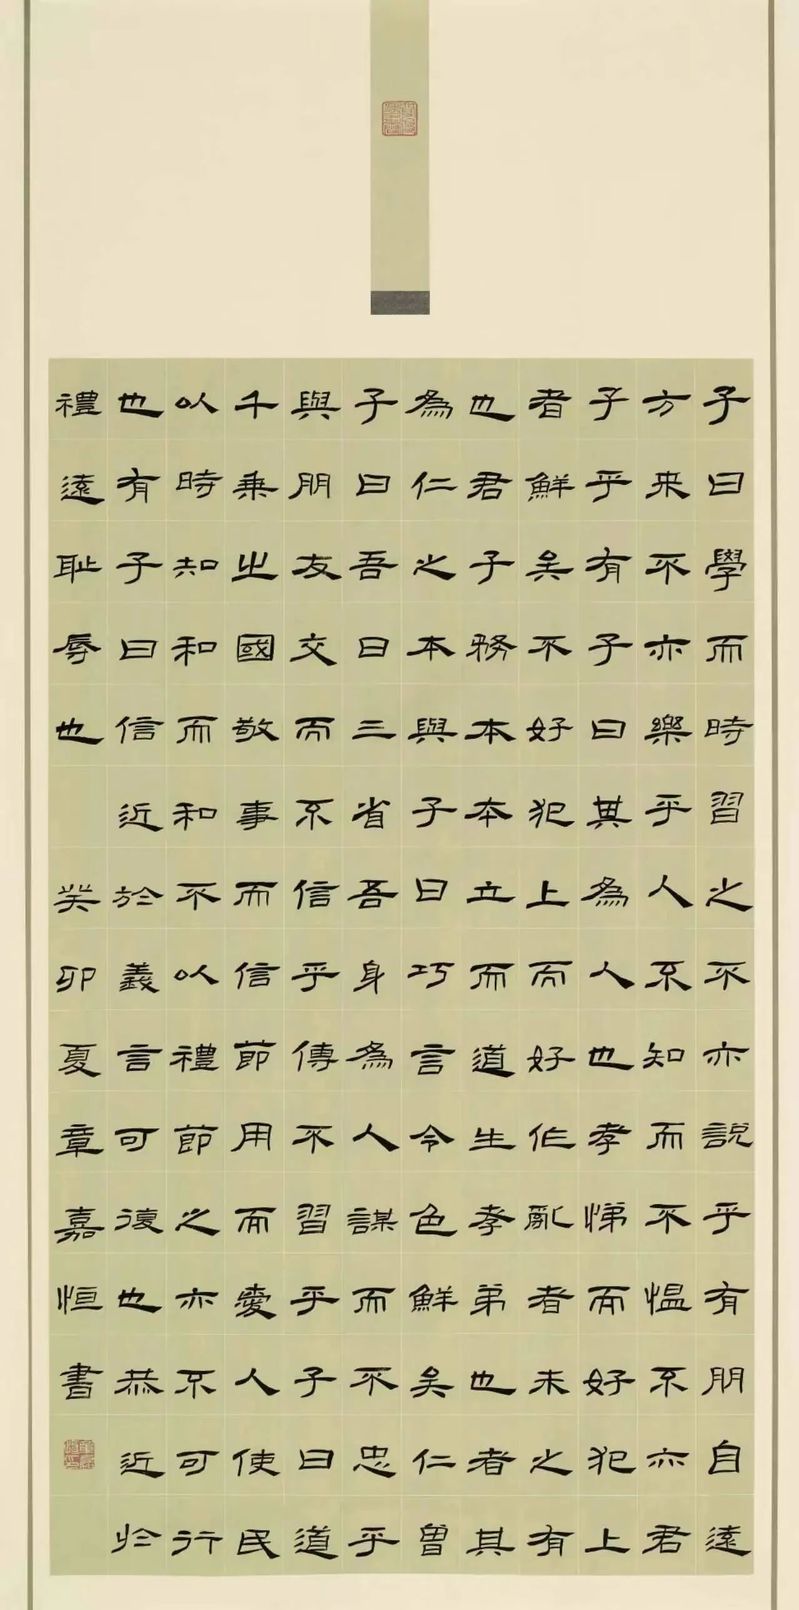 子曰學而時習之不亦說乎有朋自遠
方来不亦樂乎人不知而不愠不亦君
子乎有子曰其為人也孝悌而好犯上
者鮮矣不好犯上而好作亂者未之有
也君子務本本立而道生孝弟也者其
為仁之本與子曰巧言令色鮮矣仁曾
子曰吾日三省吾身為人謀而不忠乎
與朋友交而不信乎傳不習乎子曰道
千乘之國敬事而信節用而愛人使民
以時知和而和不以禮節之亦不可行
也有子曰信近於義言可復也恭近於
禮遠耻辱也 癸卯夏章嘉恒書